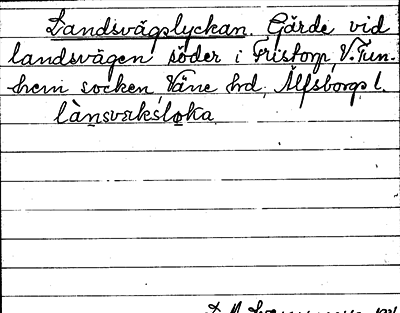 Landsvägslyckan. Gärde vid
landsvägen söder i Fristorp, V. Tun-
hem socken, Väne hrd, Älfsborgs l.
lànsvæksloka